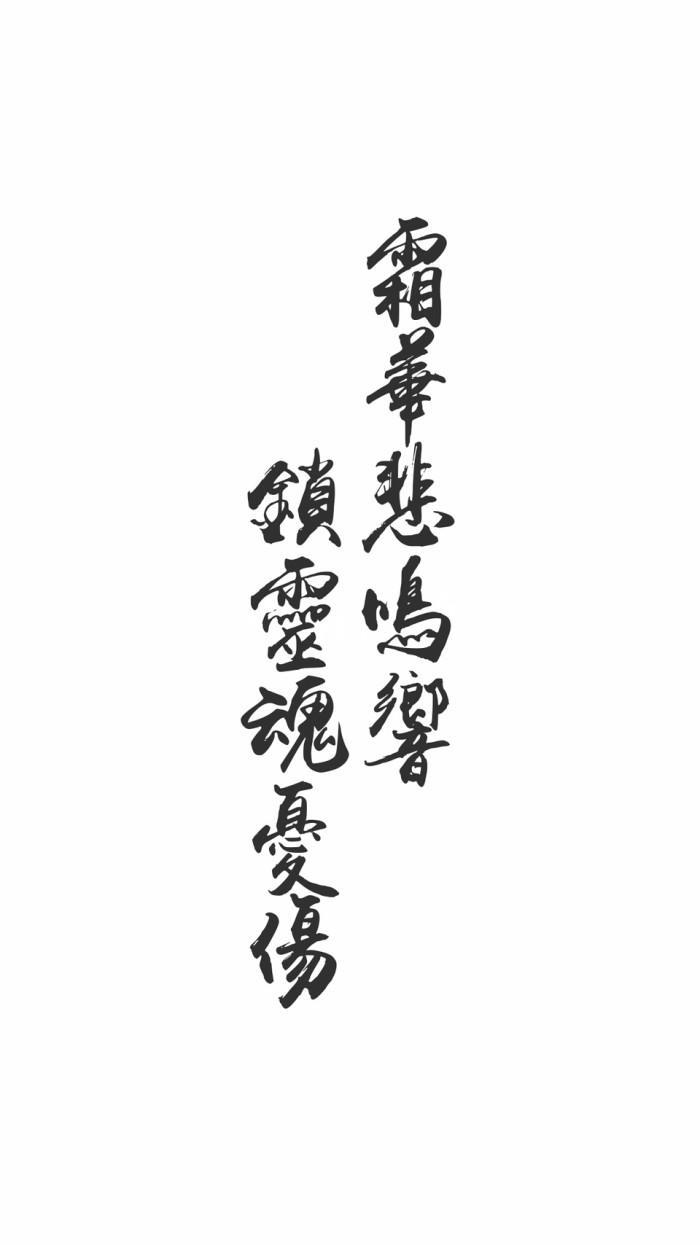 霜華悲鳴響
鎖靈魂憂傷